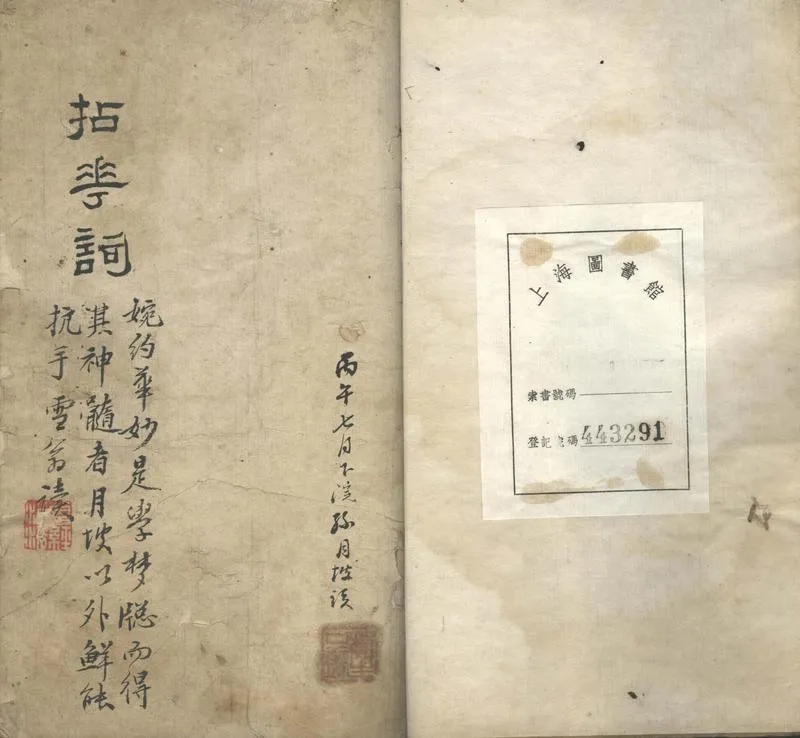 上海圖書館
索書號碼
登記號碼 443291
拈華詞
丙午七月下浣孫月坡讀
婉約華妙是學夢牕而得
其神髓者月坡以外鮮能
抗手雪翁讀